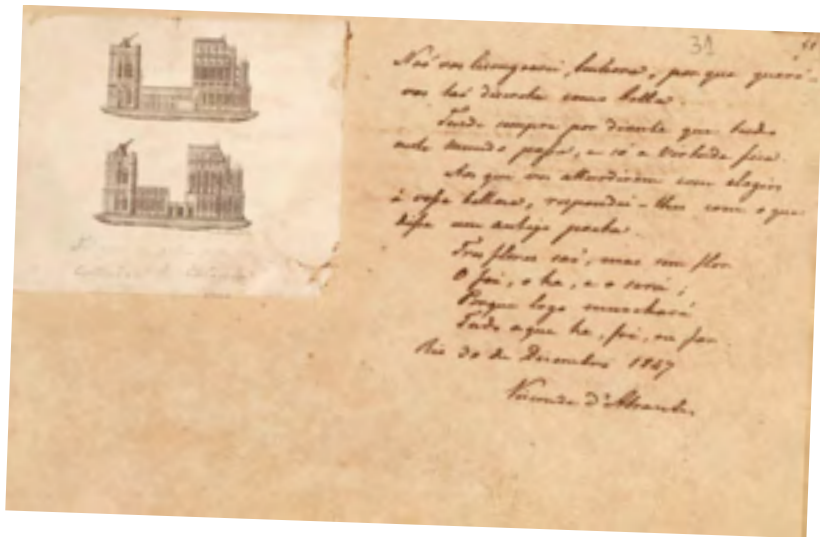 31
Não vos lisongearei, Senhora, por que quero-
vos tão discreta como bella.
Tende sempre por diante que tudo
neste mundo passa, e só a virtude fica.
Aos que vos atturdirem com elogios
á vossa belleza, respondei-lhes com o que
disse um antigo poeta.
Tres flores são, mas sem flor
O foi, o ha, e o será;
Porque logo murchará
Tudo o que ha, foi, ou for
Rio 30 de Dezembro 1847
Visconde d'Abrantes.